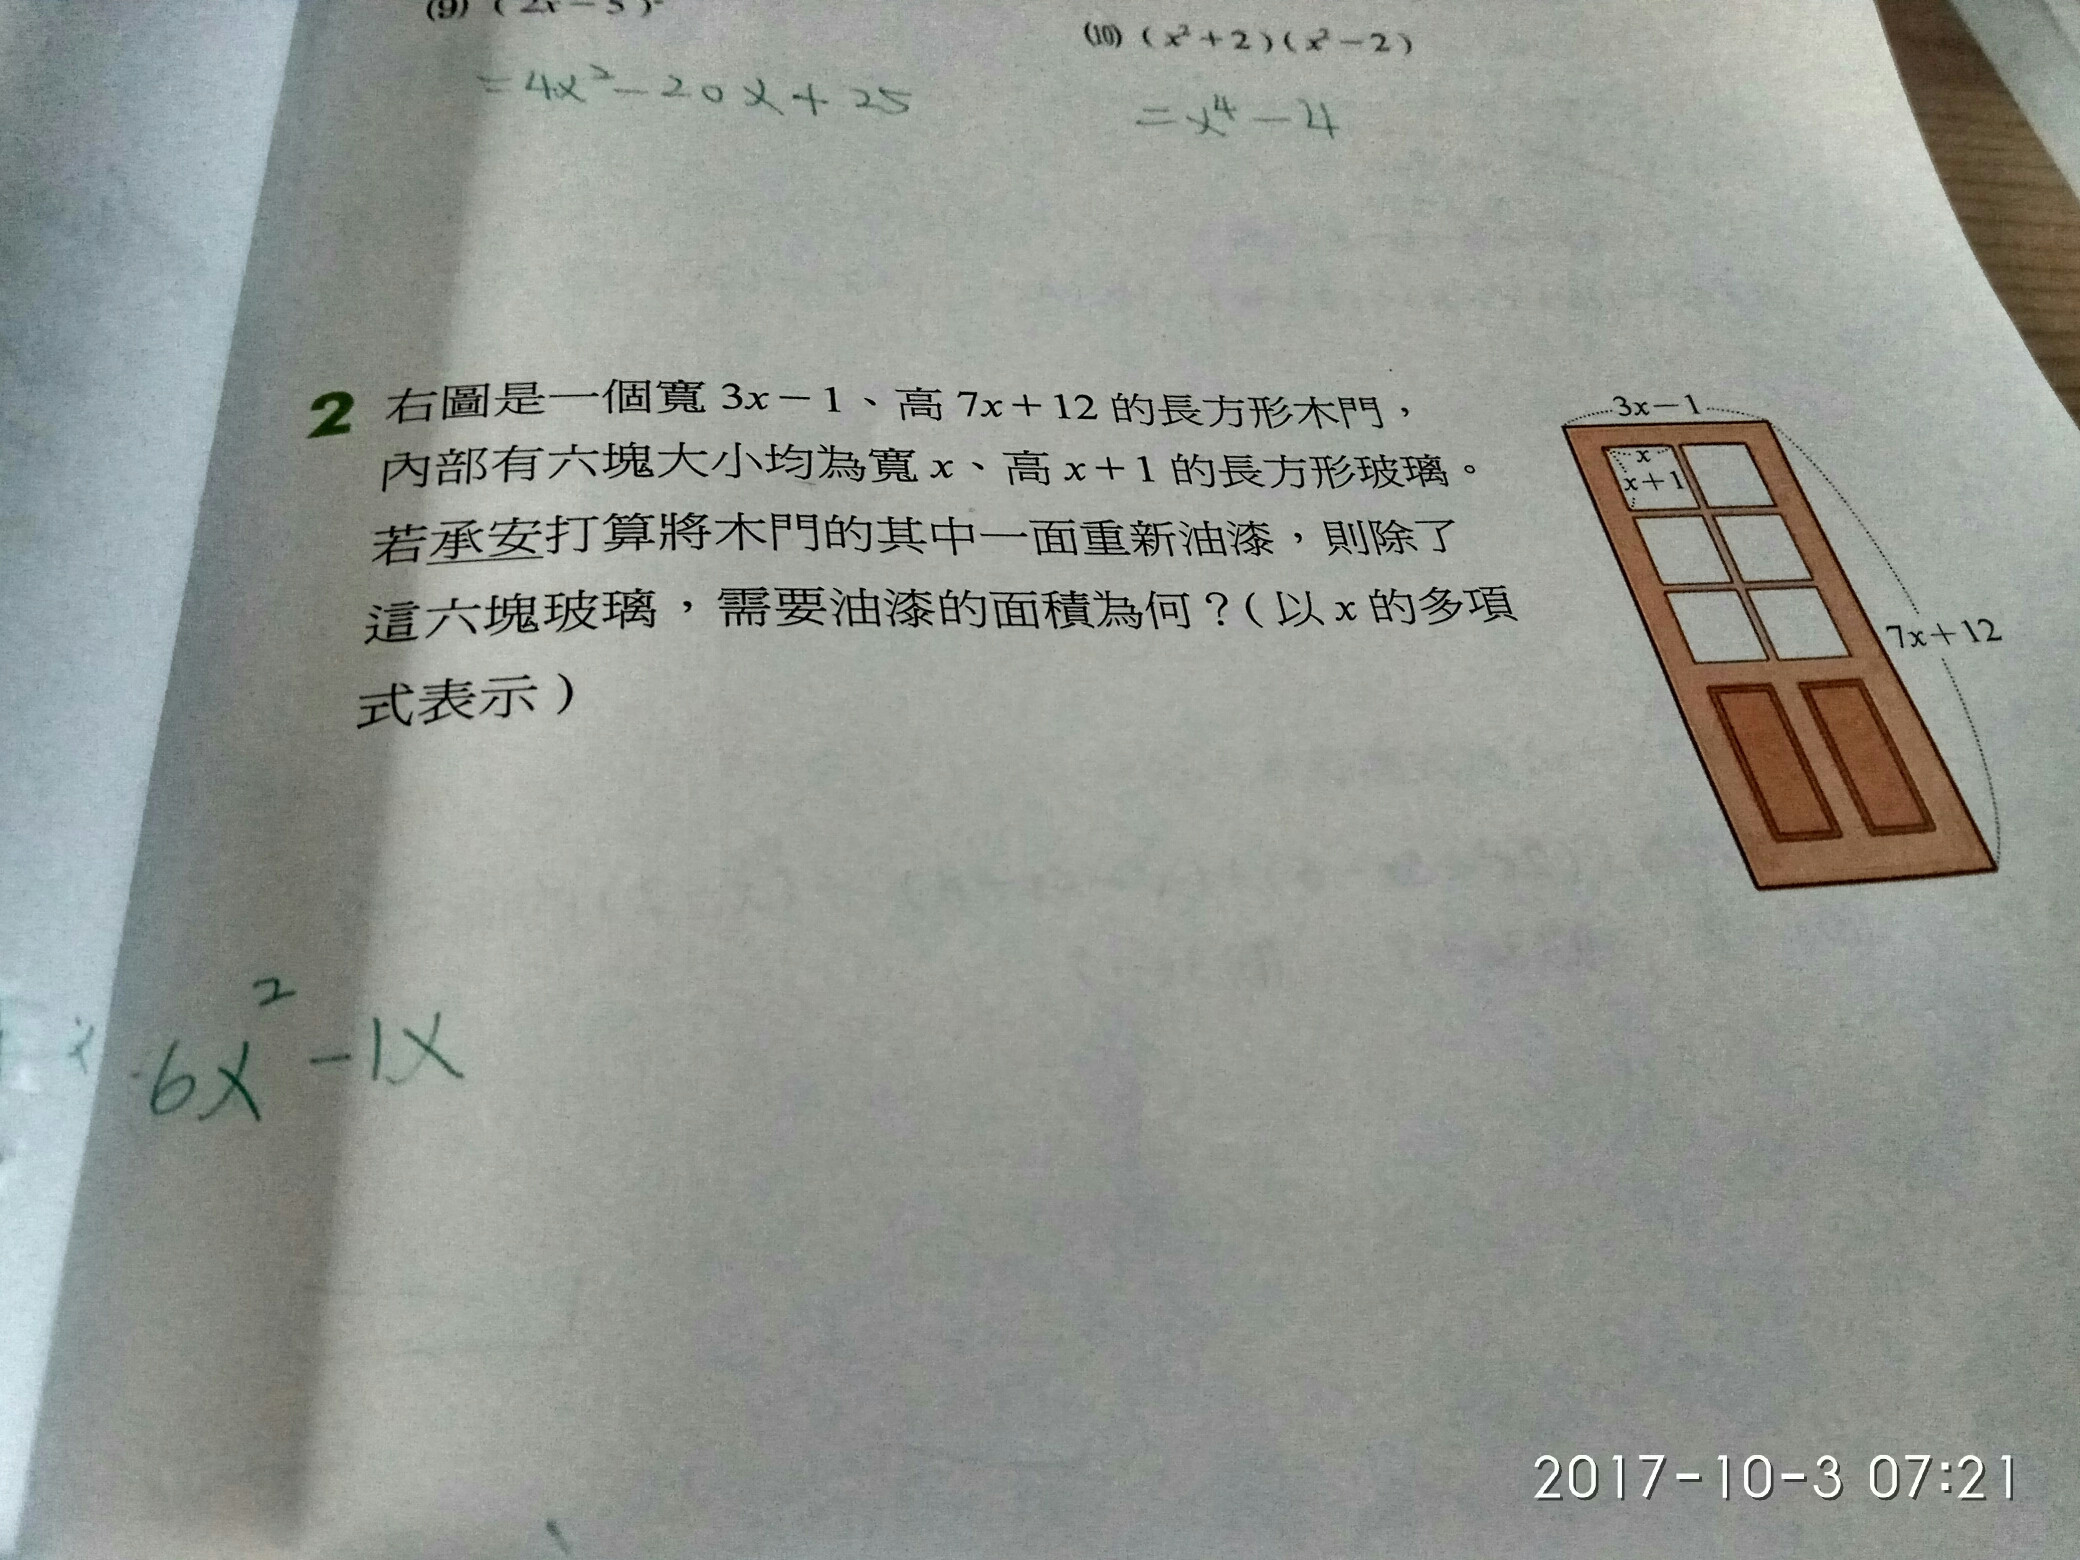 (9) (2x-5)²
=4x²-20x+25
(10) (x²+2)(x²-2)
=x⁴-4
2 右圖是一個寬 3x-1、高 7x+12 的長方形木門，
內部有六塊大小均為寬 x、高 x+1 的長方形玻璃。
若承安打算將木門的其中一面重新油漆，則除了
這六塊玻璃，需要油漆的面積為何？(以 x 的多項
式表示)
3x-1
x
x+1
7x+12
6x²-1x
2017-10-3 07:21